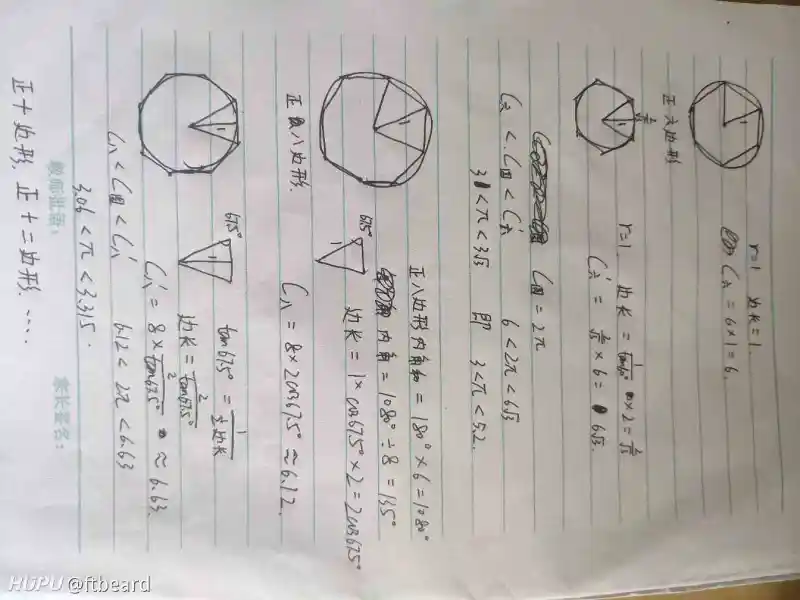 r=1 边长=1.
C六=6×1=6.
正六边形
r=1. 边长=1/tan60°×2=2/√3
C六'=2/√3×6=6√3.
C圆=2π
C六<C圆<C六' 6<2π<6√3
3<π<3√3 即 3<π<5.2.
正八边形内角和=180°×6=1080°
内角=1080°÷8=135°
67.5°
边长=1×cos67.5°×2=2cos67.5°
正八边形.
C八=8×2cos67.5°≈6.12.
67.5°
tan67.5°=1/½边长
边长=2/tan67.5°
C八'=8×2/tan67.5°≈6.63.
C八<C圆<C八' 6.12<2π<6.63
3.06<π<3.315.
教师批语: 家长签名:
正十边形,正十二边形,....
HUPU @ftbeard